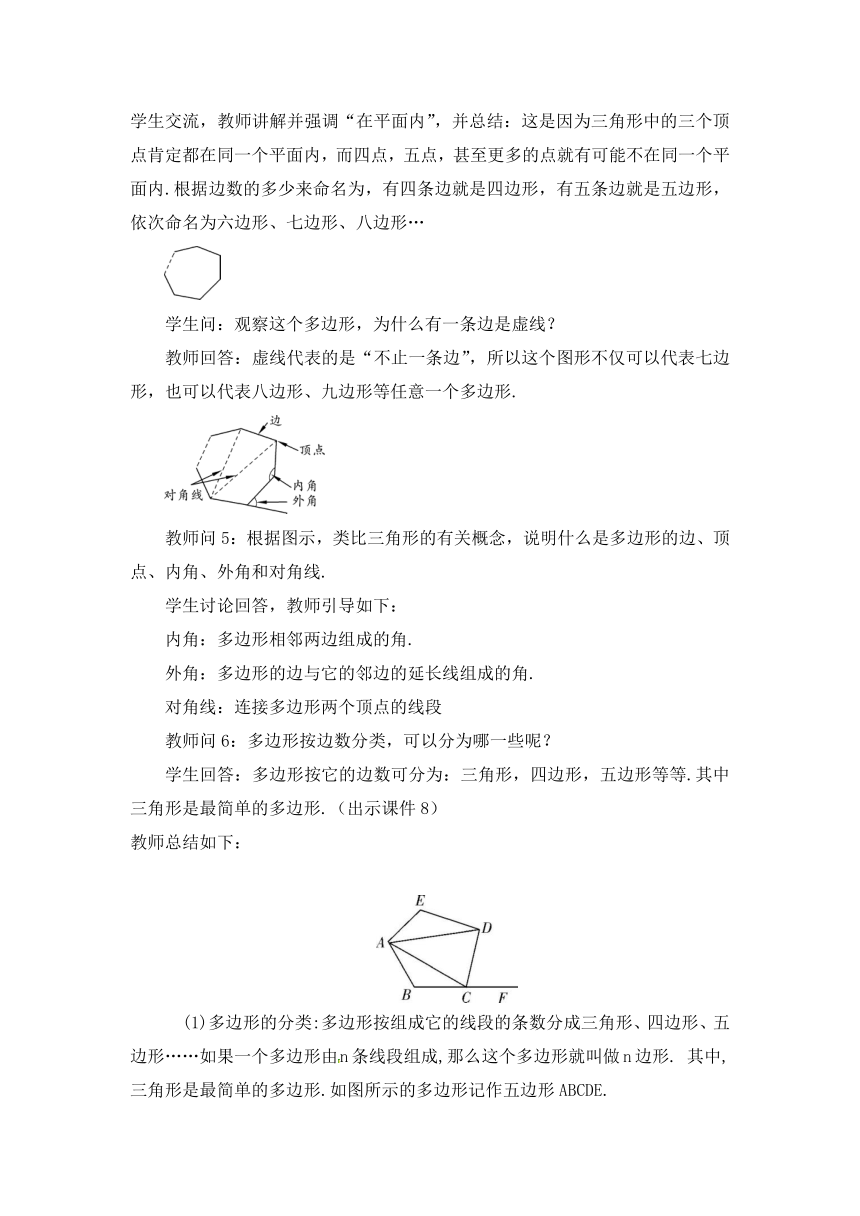 学生交流，教师讲解并强调“在平面内”，并总结：这是因为三角形中的三个顶
点肯定都在同一个平面内，而四点，五点，甚至更多的点就有可能不在同一个平
面内.根据边数的多少来命名为，有四条边就是四边形，有五条边就是五边形，
依次命名为六边形、七边形、八边形…
学生问：观察这个多边形，为什么有一条边是虚线？
教师回答：虚线代表的是“不止一条边”，所以这个图形不仅可以代表七边
形，也可以代表八边形、九边形等任意一个多边形.
边
顶点
内角
对角线
外角
教师问5：根据图示，类比三角形的有关概念，说明什么是多边形的边、顶
点、内角、外角和对角线.
学生讨论回答，教师引导如下：
内角：多边形相邻两边组成的角.
外角：多边形的边与它的邻边的延长线组成的角.
对角线：连接多边形两个顶点的线段
教师问6：多边形按边数分类，可以分为哪一些呢？
学生回答：多边形按它的边数可分为：三角形，四边形，五边形等等.其中
三角形是最简单的多边形.（出示课件8）
教师总结如下：
E
D
A
B
C
F
(1)多边形的分类:多边形按组成它的线段的条数分成三角形、四边形、五
边形……如果一个多边形由n条线段组成,那么这个多边形就叫做n边形. 其中,
三角形是最简单的多边形.如图所示的多边形记作五边形ABCDE.